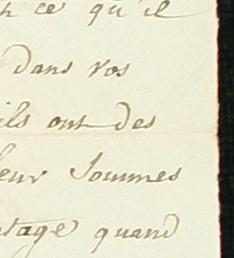 ce qu'il
dans vos
ils ont des
leur sommes
tage quand